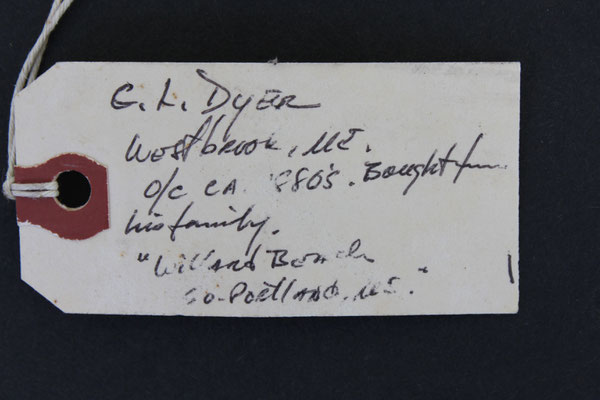 C. L. DYER
WESTBROOK, ME.
O/C CA. 1880'S. Bought from
his family.
"WILLARD BEACH
SO. PORTLAND, ME."